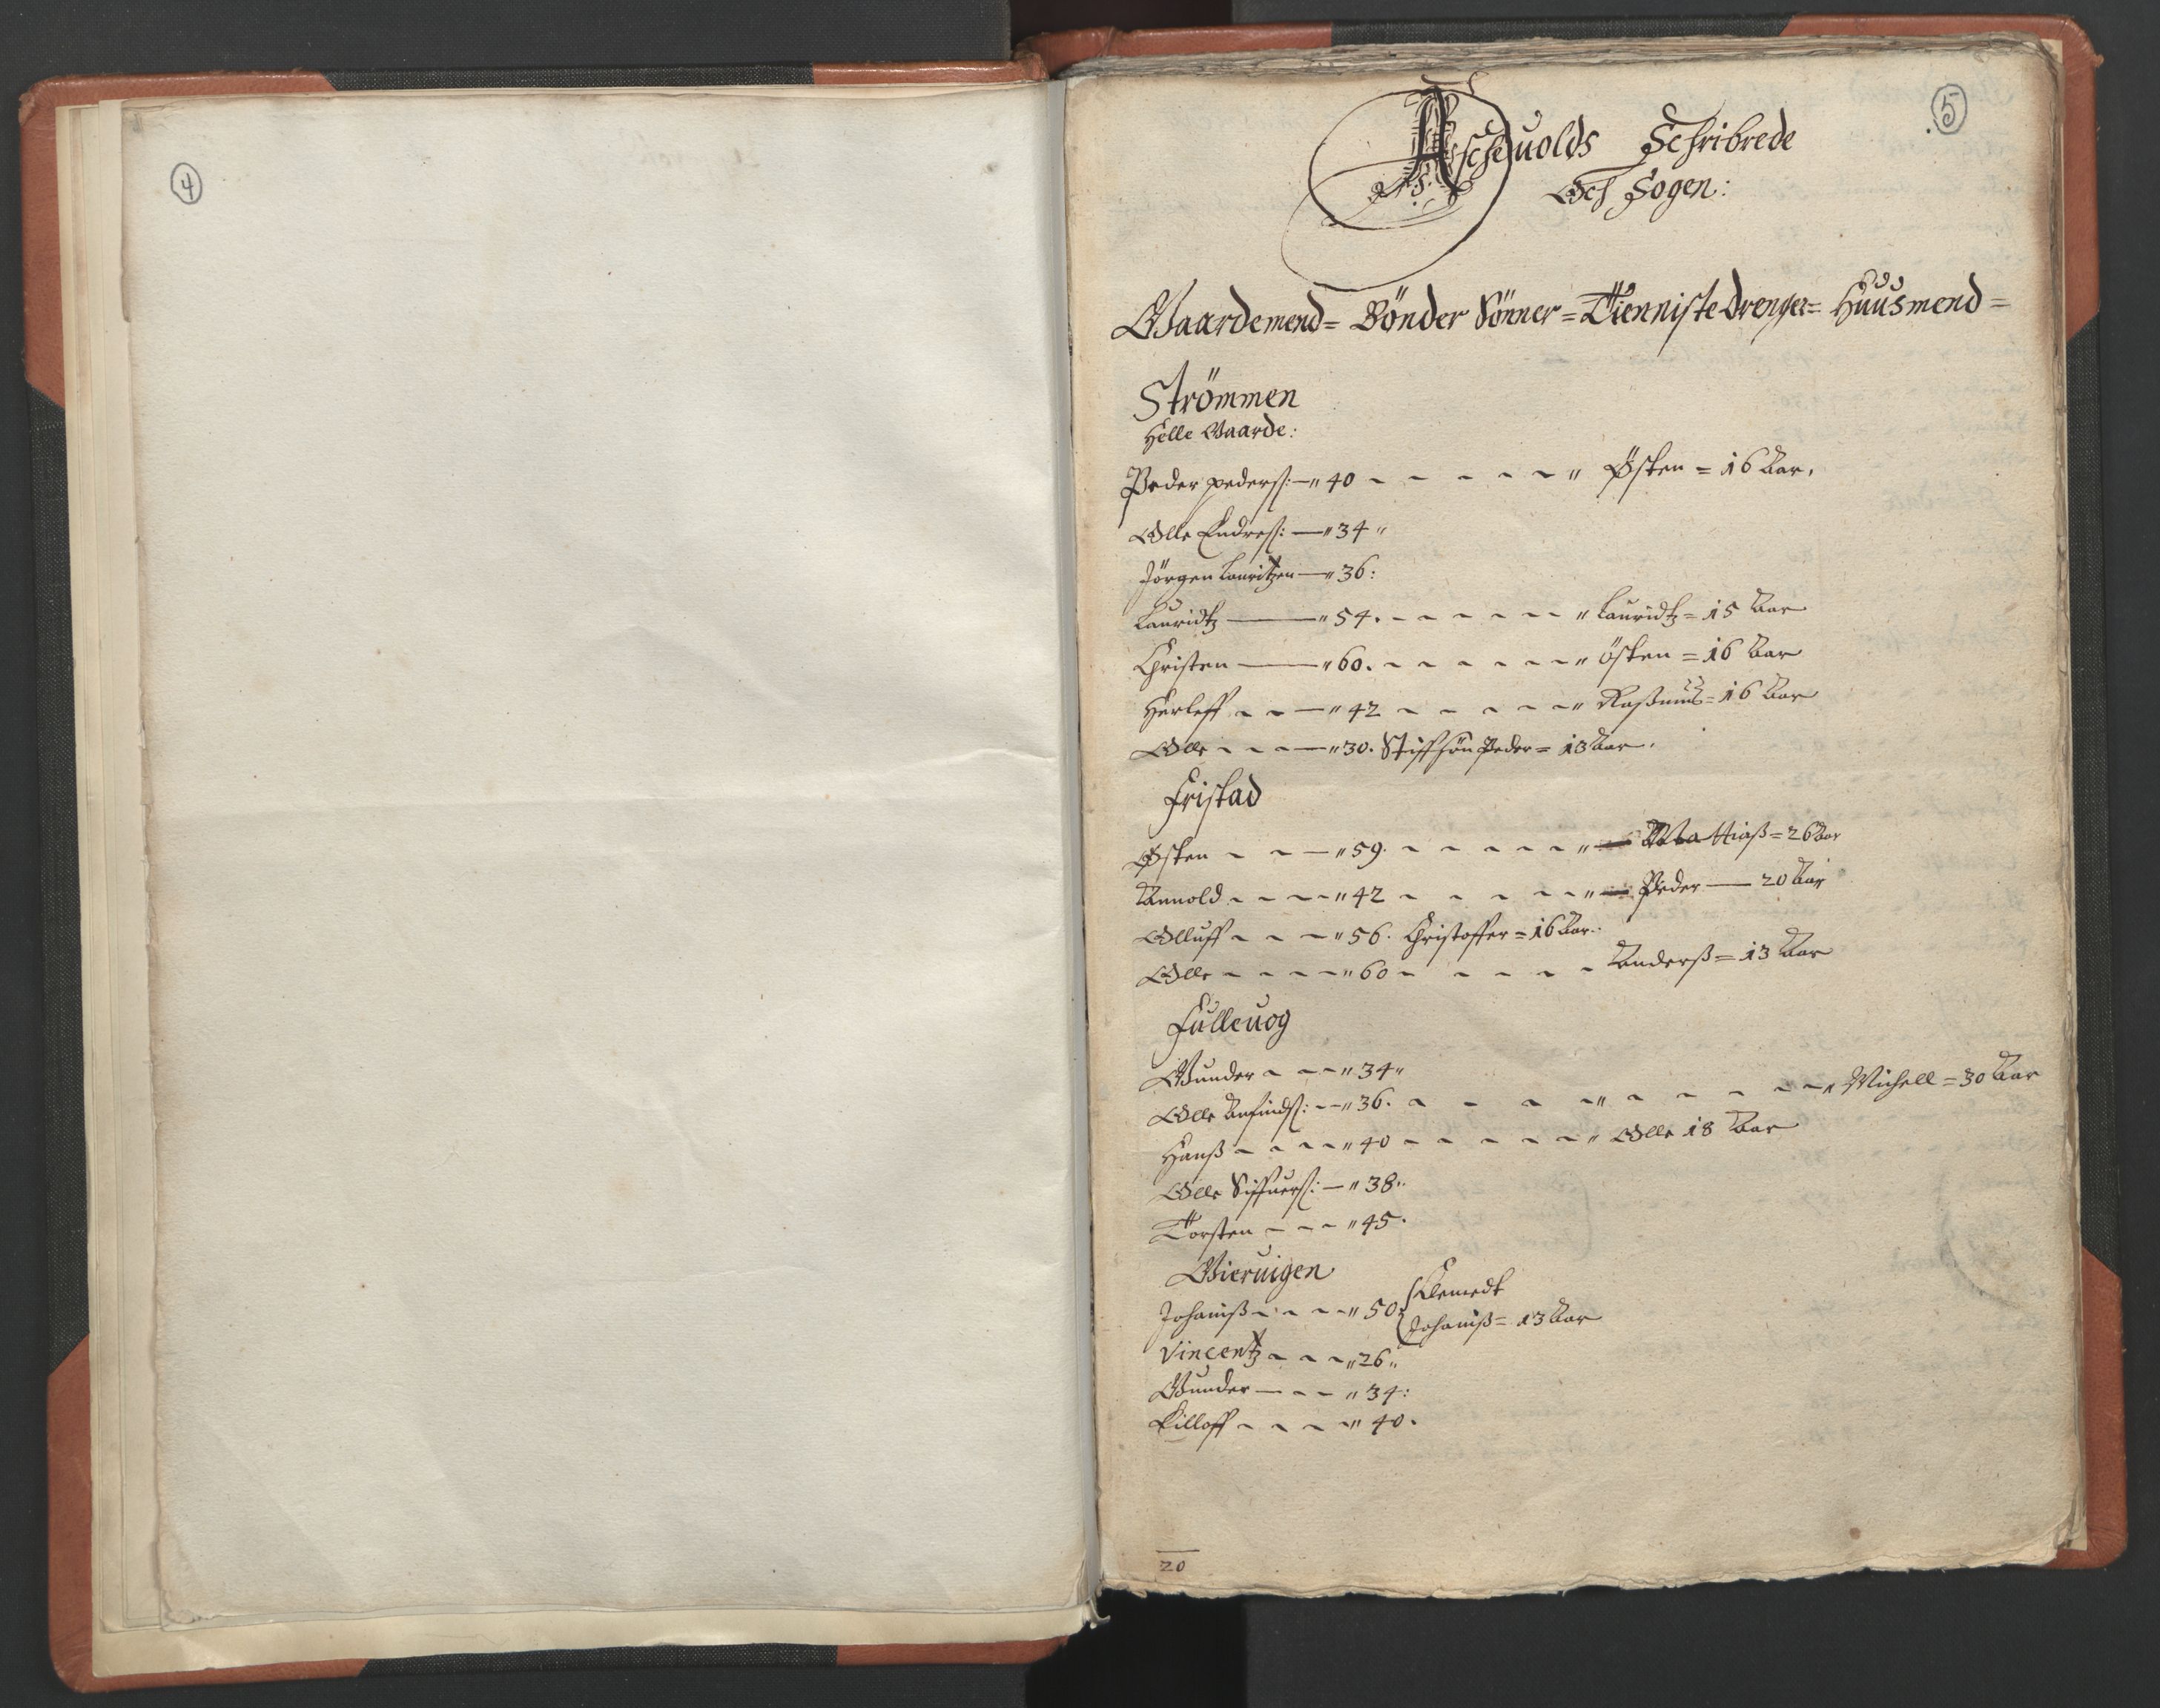 4
5
Ascheuolds Schribrede
Och Sogen:
Gaardemend= Bönder Sönner= Tienniste drenger= Huusmend=
Strömmen
Helle Gaarde:
Peder peders: — 40 - - - - - " Østen = 16 Aar.
Olle Endres: — "34 "
Jörgen Lauritzen — "36:
Lauridtz — "54. - - - - - " Lauridtz = 15 Aar
Christen — "60. - - - - - " Östen = 16 Aar
Herleff - - — "42 - - - - - " Raßmus = 16 Aar
Olle - - - — "30. Stiffsön Peder = 13 Aar.
Fristad
Østen - - — "59. - - - - - " — Mattiaß = 26 Aar
Annold - - - - "42 - - - - - " — Peder — 20 Aar
Olluff - - - "56. Christoffer = 16 Aar.
Olle - - - - "60 - - - - - Anderß = 13 Aar
Fulleuog
Gunder - - - "34 "
Olle Anfinds: - - "36. - - - - " - - - - - " Michell = 30 Aar
Hanß - - - - "40 - - - - - " Olle 18 Aar
Olle Siffuers: — "38 "
Torsten - - - "45.
Gieruigen
Johanniß - - - - "50. { Clemedt
Johanniß = 13 Aar
Vincentz - - - "26 "
Gunder — - - "34:
Killoff - - - - "40.
20